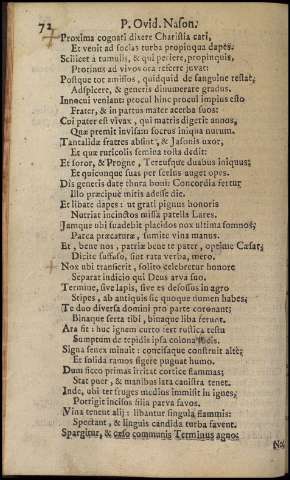 72 P. Ovid. Nason.
Proxima cognati dixere Charistia cari,
Et venit ad socias turba propinqua dapes.
Scilicet a tumulis, & qui periere, propinquis,
Protinus ad vivos ora referre juvat:
Postque tot amissos, quidquid de sanguine restat,
Adspicere, & generis dinumerare gradus.
Innocui veniant: procul hinc procul impius esto
Frater, & in partus mater acerba suos:
Cui pater est vivax, qui matris digerit annos,
Quæ premit invisam socrus iniqua nurum.
Tantalidæ fratres absint, & Jasonis uxor,
Et quæ ruricolis semina tosta dedit:
Et soror, & Progne, Tereusque duabus iniquus;
Et quicunque suas per scelus auget opes.
Dis generis date thura boni: Concordia fertur
Illo præcipue mitis adesse die.
Et libate dapes: ut grati pignus honoris
Nutriat incinctos missa patella Lares.
Jamque ubi suadebit placidos nox ultima somnos;
Parca precaturæ, sumite vina manus.
Et, bene nos, patriæ bene te pater, optime Cæsar;
Dicite suffuso, sint rata verba, mero.
Nox ubi transierit, solito celebretur honore
Separat indicio qui Deus arva suo.
Termine, sive lapis, sive es defossus in agro
Stipes, ab antiquis sic quoque numen habes;
Te duo diversa domini pro parte coronant;
Binaque serta tibi, binaque liba ferunt.
Ara fit: huc ignem curto fert rustica testu
Sumptum de tepidis ipsa colona focis.
Signa senex minuit: concisaque construit alte;
Et solida ramos figere pugnat humo.
Dum sicco primas irritat cortice flammas;
Stat puer, & manibus lata canistra tenet.
Inde, ubi ter fruges medios immisit in ignes,
Porrigit incisos filia parva favos.
Vina tenent alii: libantur singula flammis:
Spectant, & linguis candida turba favent.
Spargitur, & cæso communis Terminus agno: